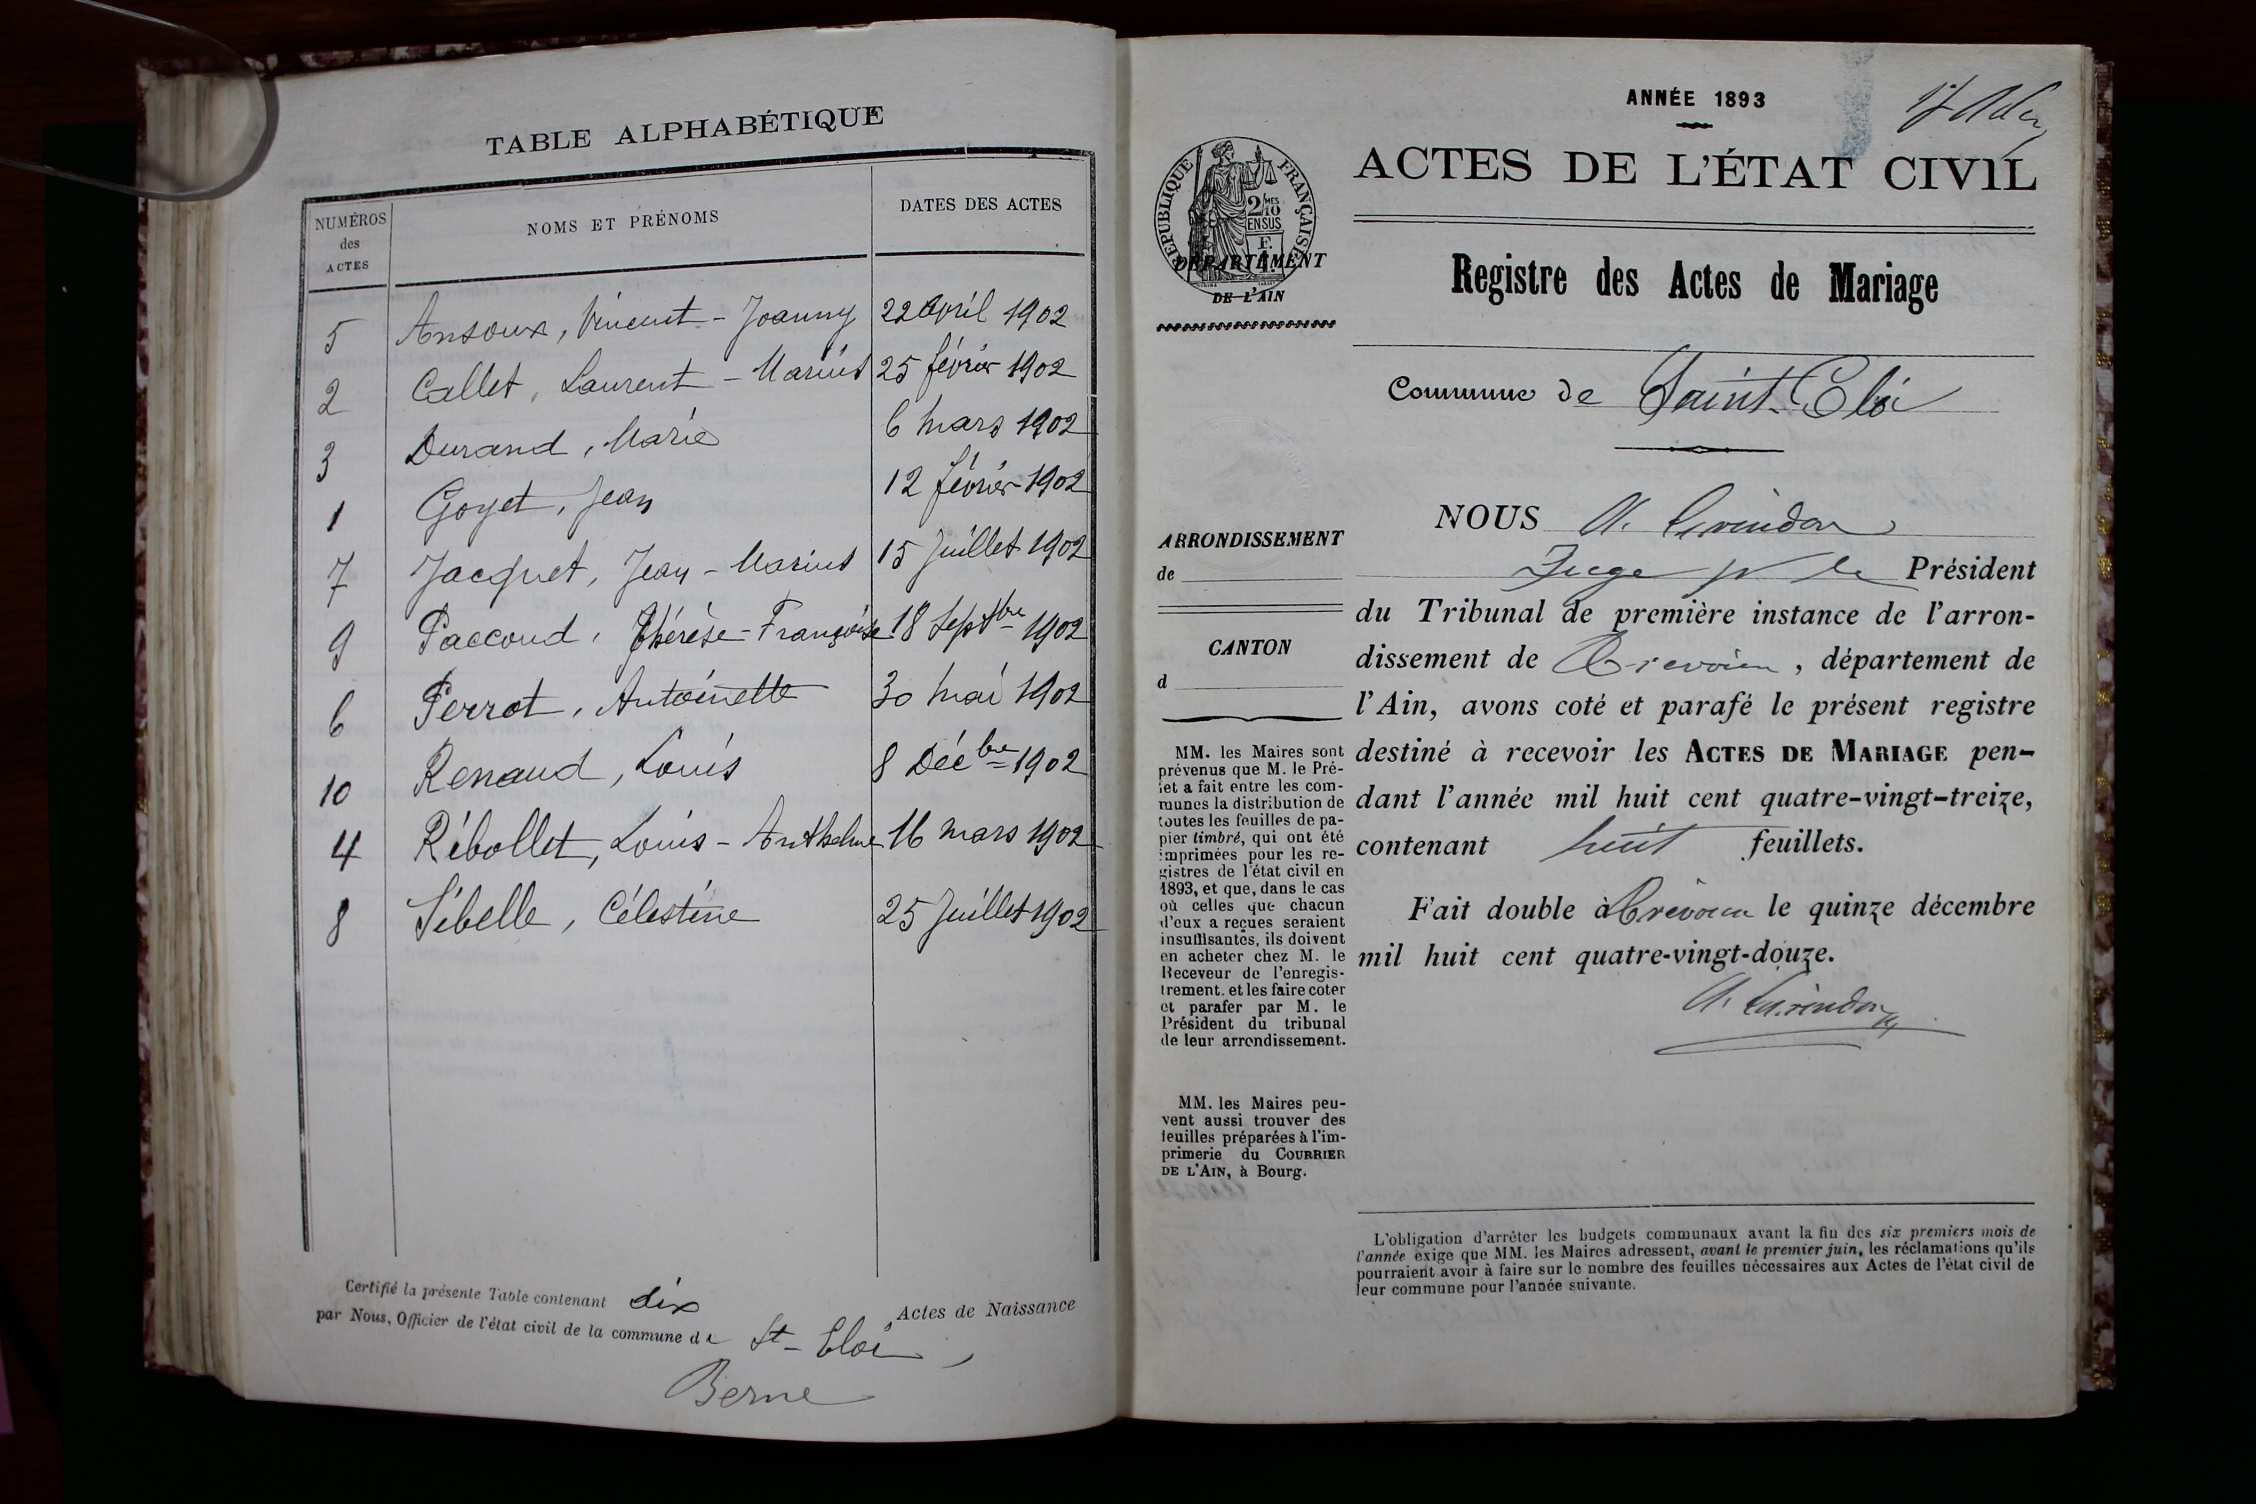 TABLE ALPHABÉTIQUE
NUMÉROS des ACTES NOMS ET PRÉNOMS DATES DES ACTES
5 Ansoux, Vincent - Joanny 22 April 1902
2 Callet, Laurent - Marius 25 février 1902
3 Durand, Marie 6 mars 1902
1 Goyet, Jean 12 février 1902
7 Jacquet, Jean - Marius 15 Juillet 1902
9 Paccoud, Thérèse - Françoise 18 Septbre 1902
6 Perrot, Antoinette 30 mai 1902
10 Renaud, Louis 8 Décbre 1902
4 Ribollet, Louis - Anthelme 16 mars 1902
8 Sibelle, Célestine 25 Juillet 1902
Certifié la présente Table contenant dix Actes de Naissance
par Nous, Officier de l'état civil de la commune de St - Eloi,
Berne
ANNÉE 1893
ACTES DE L'ÉTAT CIVIL
RÉPUBLIQUE FRANÇAISE
2/10 MES
EN SUS
DÉPARTEMENT
DE L'AIN
Registre des Actes de Mariage
Commune de Saint-Eloi
ARRONDISSEMENT
de
CANTON
d
MM. les Maires sont
prévenus que M. le Pré-
fet a fait entre les com-
munes la distribution de
toutes les feuilles de pa-
pier timbré, qui ont été
imprimées pour les re-
gistres de l'état civil en
1893, et que, dans le cas
où celles que chacun
d'eux a reçues seraient
insuffisantes, ils doivent
en acheter chez M. le
Receveur de l'enregis-
trement. et les faire coter
et parafer par M. le
Président du tribunal
de leur arrondissement.
MM. les Maires peu-
vent aussi trouver des
feuilles préparées à l'im-
primerie du COURRIER
DE L'AIN, à Bourg.
NOUS A.
Juge pr le Président
du Tribunal de première instance de l'arron-
dissement de Trevoux, département de
l'Ain, avons coté et parafé le présent registre
destiné à recevoir les ACTES DE MARIAGE pen-
dant l'année mil huit cent quatre-vingt-treize,
contenant huit feuillets.
Fait double à Trévoux le quinze décembre
mil huit cent quatre-vingt-douze.
L'obligation d'arrêter les budgets communaux avant la fin des six premiers mois de
l'année exige que MM. les Maires adressent, avant le premier juin, les réclamations qu'ils
pourraient avoir à faire sur le nombre des feuilles nécessaires aux Actes de l'état civil de
leur commune pour l'année suivante.